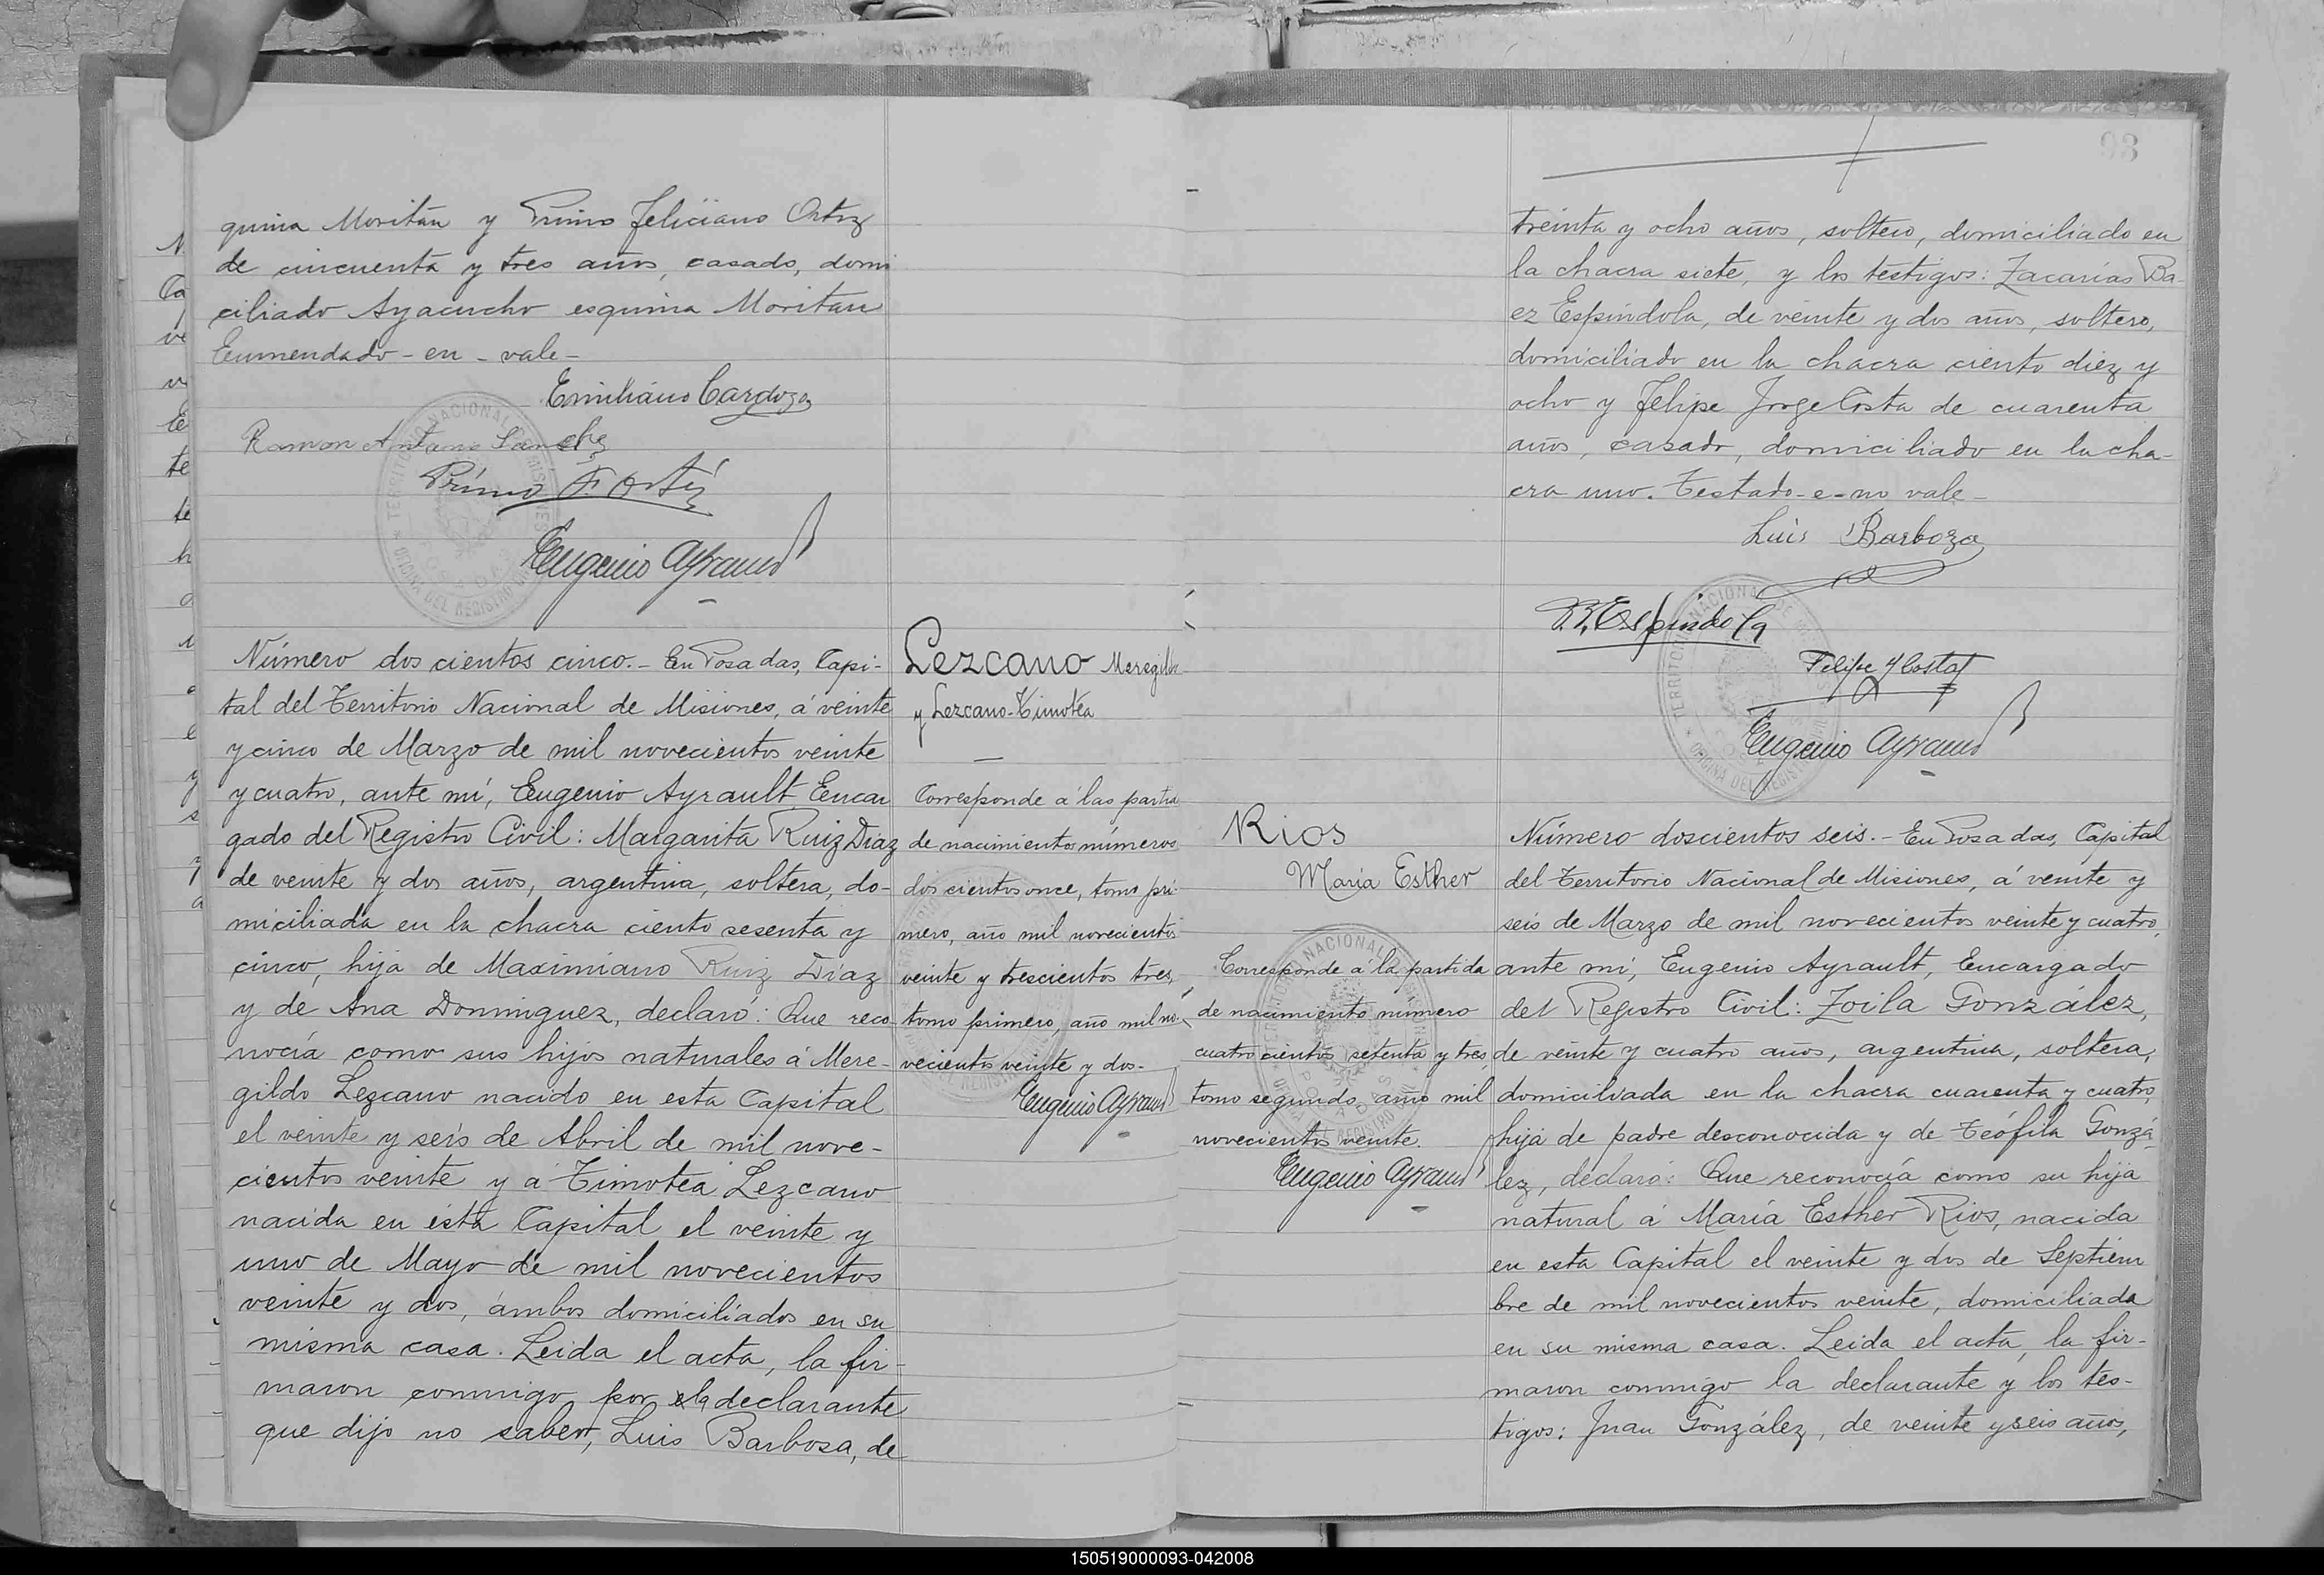 quina Moritán y Primo Feliciano Ortiz
de cincuenta y tres años, casado, domi
ciliado Ayacucho esquina Moritan
Enmendado - en - vale -
Emiliano Cardozo
Ramon Antonio Sanchez
Primo F. Ortiz
Eugenio Ayrault
Número dos cientos cinco. - En Posadas, Capi-
tal del Territorio Nacional de Misiones, á veinte
y cinco de Marzo de mil novecientos veinte
y cuatro, ante mí, Eugenio Ayrault, Encar
gado del Registro Civil: Margarita Ruiz Diaz
de veinte y dos años, argentina, soltera, do-
miciliada en la chacra ciento sesenta y
cinco, hija de Maximiano Ruiz Díaz
y de Ana Dominguez, declaró: Que reco-
nocía como sus hijos naturales á Mere-
gildo Lezcano nacido en esta Capital
el veinte y seis de Abril de mil nove-
cientos veinte y á Timotea Lezcano
nacida en ésta Capital el veinte y
uno de Mayo de mil novecientos
veinte y dos, ámbos domiciliados en su
misma casa. Leida el acta, la fir-
maron conmigo por la declarante
que dijo no saber, Luis Barbosa, de
Lezcano Meregildo
y Lezcano - Timotea
Corresponde a las partidas
de nacimientos números
dos cientos once, tomo pri-
mero, año mil novecientos
veinte y trescientos tres,
tomo primero, año mil no-
vecientos veinte y dos -
Eugenio Ayrault
93
treinta y ocho años, soltero, domiciliado en
la chacra siete, y los téstigos: Zacarías Ba-
ez Espíndola, de veinte y dos años, soltero,
domiciliado en la chacra ciento diez y
ocho y Felipe Jorge Costa de cuarenta
años, casado, domiciliado en la cha-
cra uno. Testado - e - no vale -
Luis Barboza
Z. B. Espindola
Felipe J Costa
Eugenio Ayrault
Rios
María Esther
Corresponde a la partida
de nacimiento número
cuatrocientos setenta y tres,
tomo segundo, año mil
novecientos veinte.
Eugenio Ayrault
Número doscientos seis. - En Posadas, Capital
del Territorio Nacional de Misiones, á veinte y
seis de Marzo de mil novecientos veinte y cuatro,
ante mí, Eugenio Ayrault, Encargado
del Registro Civil: Zoila González,
de veinte y cuatro años, argentina, soltera,
domiciliada en la chacra cuarenta y cuatro,
hija de padre desconocida y de Teófila Gonzá-
lez, declaró: Que reconocía como su hija
natural á María Esther Rios, nacida
en esta Capital el veinte y dos de Septiem
bre de mil novecientos veinte, domiciliada
en su misma casa. Leida el acta, la fir-
maron conmigo la declarante y los tes-
tigos: Juan González, de veinte y seis años,
150519000093-042008